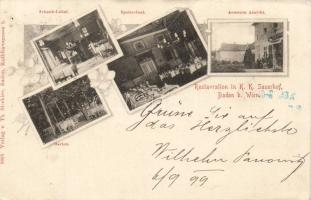 Schank-Lokal.
Speisesaal.
Aeussere Ansicht.
Restauration in K. K. Sauerhof,
Baden b. Wien.
Garten.
Grüsse Sie auf
das Herzlichste
Wilhelm
6/9 99
Verlag v. Th. Baden,